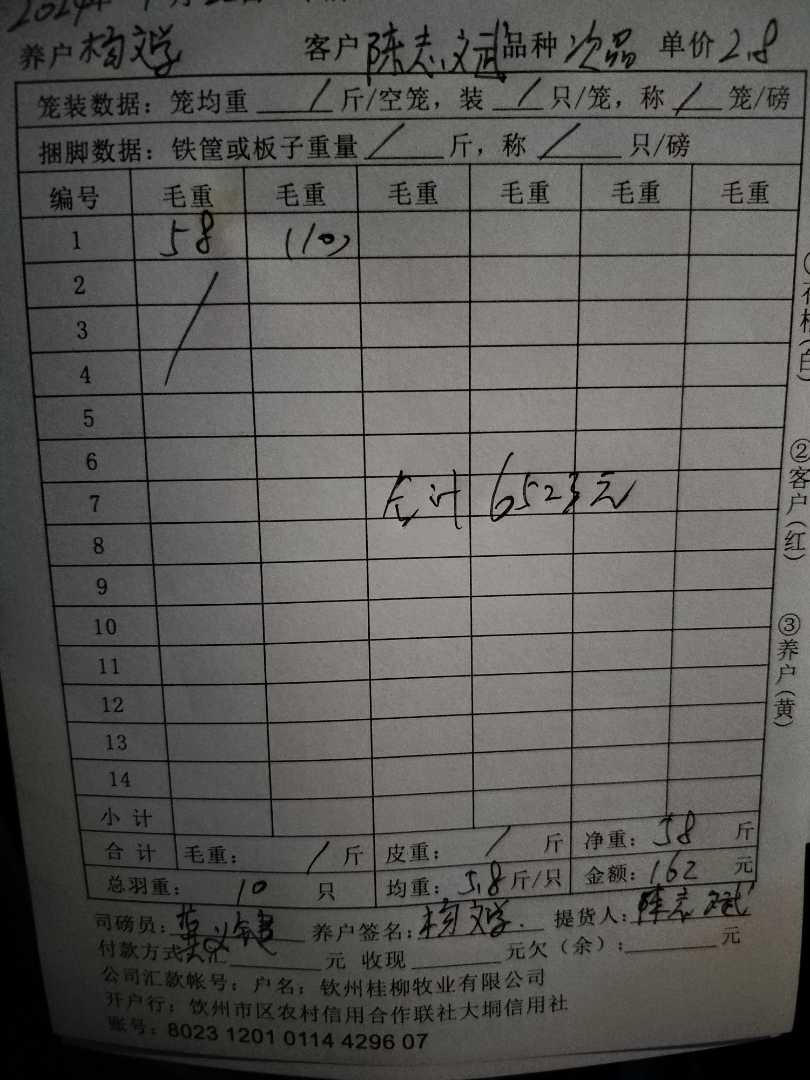 2024年
养户 杨文学 客户 陈志斌 品种 次品 单价 2.8
笼装数据：笼均重 / 斤/空笼，装 / 只/笼，称 / 笼/磅
捆脚数据：铁筐或板子重量 / 斤，称 / 只/磅
编号 毛重 毛重 毛重 毛重 毛重 毛重
1 58 (10)
2
3
4
5
6
7 合计 6523元
8
9
10
11
12
13
14
小计
合计 毛重： / 斤 皮重： / 斤 净重：58 斤
总羽重： 10 只 均重：5.8 斤/只 金额：162 元
司磅员： 养户签名：杨文学 提货人：陈志斌
付款方式 汇 元 收现 元欠（余）： 元
公司汇款帐号：户名：钦州桂柳牧业有限公司
开户行：钦州市区农村信用合作联社大垌信用社
账号：8023 1201 0114 4296 07
②客户（红）
③养户（黄）